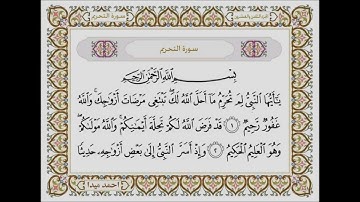 سورة التحريم
سورة التحريم
بِسْمِ اللَّهِ الرَّحْمَٰنِ الرَّحِيمِ
يَٰٓأَيُّهَا النَّبِيُّ لِمَ تُحَرِّمُ مَآ أَحَلَّ اللَّهُ لَكَ ۖ تَبْتَغِي مَرْضَاتَ أَزْوَٰجِكَ ۚ وَاللَّهُ
غَفُورٌ رَّحِيمٌ ١ قَدْ فَرَضَ اللَّهُ لَكُمْ تَحِلَّةَ أَيْمَٰنِكُمْ ۚ وَاللَّهُ مَوْلَىٰكُمْ ۖ
وَهُوَ الْعَلِيمُ الْحَكِيمُ ٢ وَإِذْ أَسَرَّ النَّبِيُّ إِلَىٰ بَعْضِ أَزْوَٰجِهِ حَدِيثًا